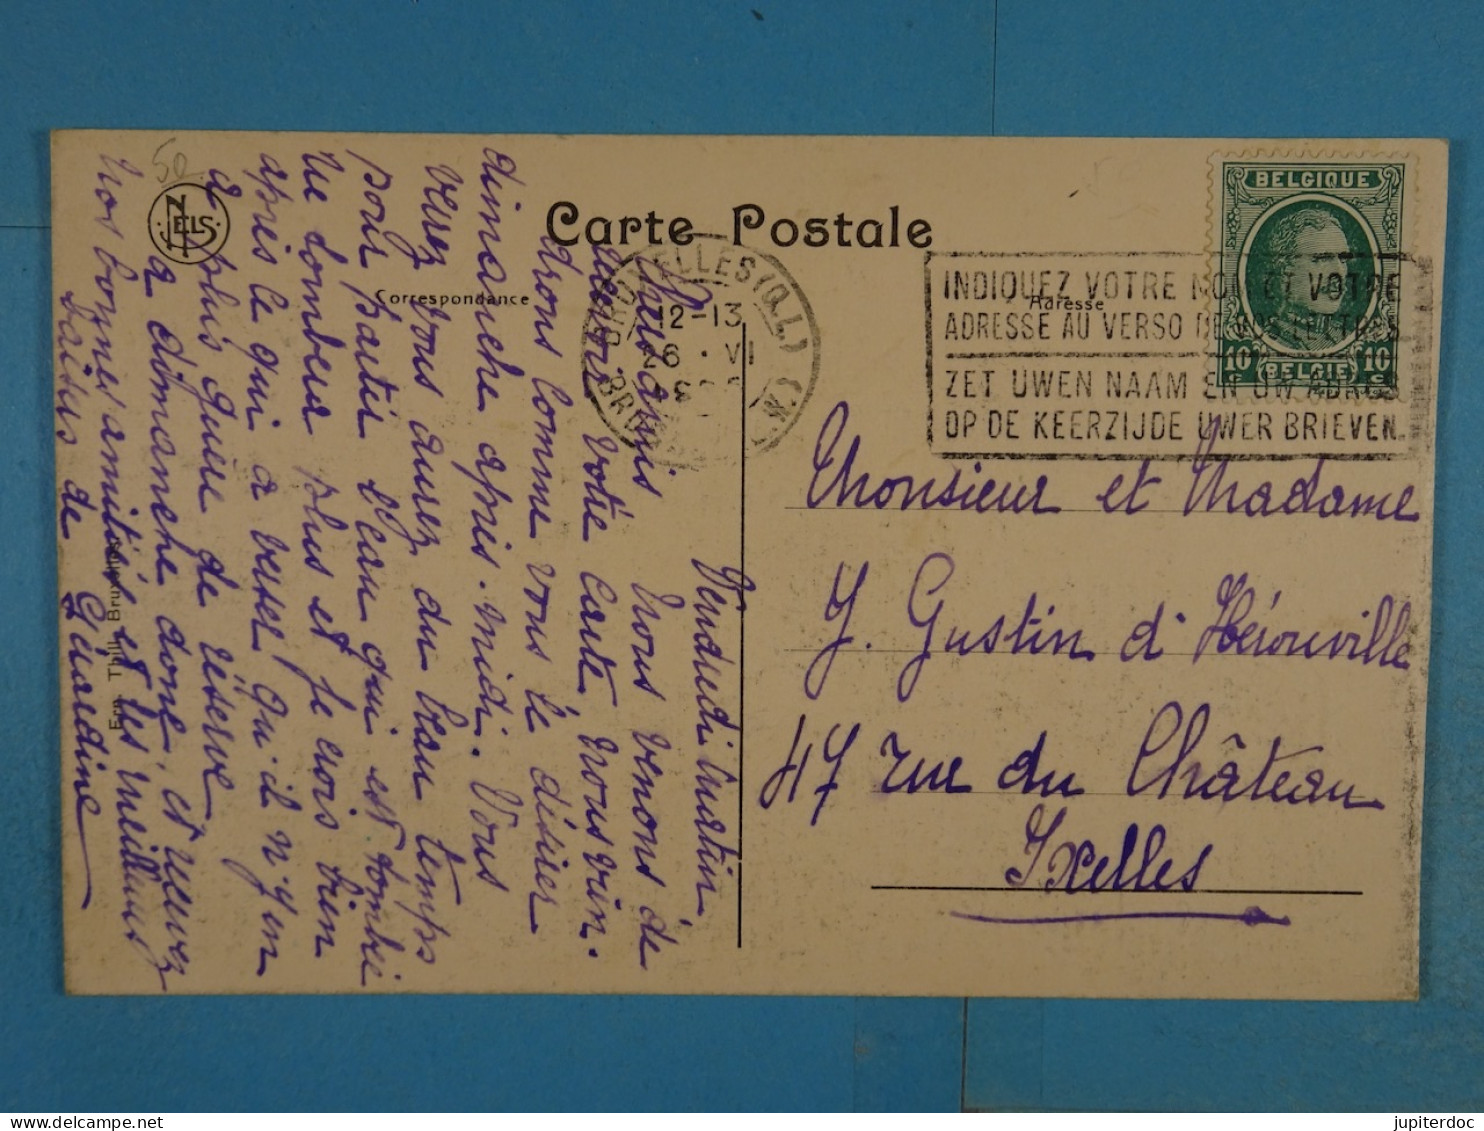 50
NELS
Carte Postale
Correspondance
Adresse
BRUXELLES (Q.L.)
12-13
26 · VI
BELGIQUE
10c
BELGIË
10c
INDIQUEZ VOTRE NOM ET VOTRE
ADRESSE AU VERSO DE VOS LETTRES
ZET UWEN NAAM EN UW ADRES
OP DE KEERZIJDE UWER BRIEVEN.
Vendredi matin
Chers amis
Nous venons de
recevoir votre carte, nous vien-
drons comme vous le désirer
dimanche après-midi. Vous
verez vous aurez du beau temps
pour Bautié l'eau qui est tombée
ne tombera plus et je crois bien
après ce qui a versé qu'il n'y en
a plus guère de réserve
à dimanche donc, et recevez
nos bonnes amitiés et les meilleurs
baisers de Guardine
Ern. Thill, Bruxelles
Monsieur et Madame
J. Gustin d'Hérouville
47 rue du Château
Ixelles
jupiterdoc